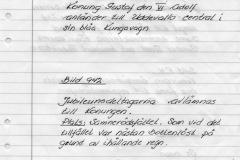 Konung Gustaf den VI Adolf
anländer till Uddevalla central i
sin blåa Kungavagn
Bild 942.
Jubileumsdeltagarna avlämnas
till Konungen.
Plats: Samneröds fältet. Som vid det
tillfället var nästan bottenlöst på
grund av ihållande regn.